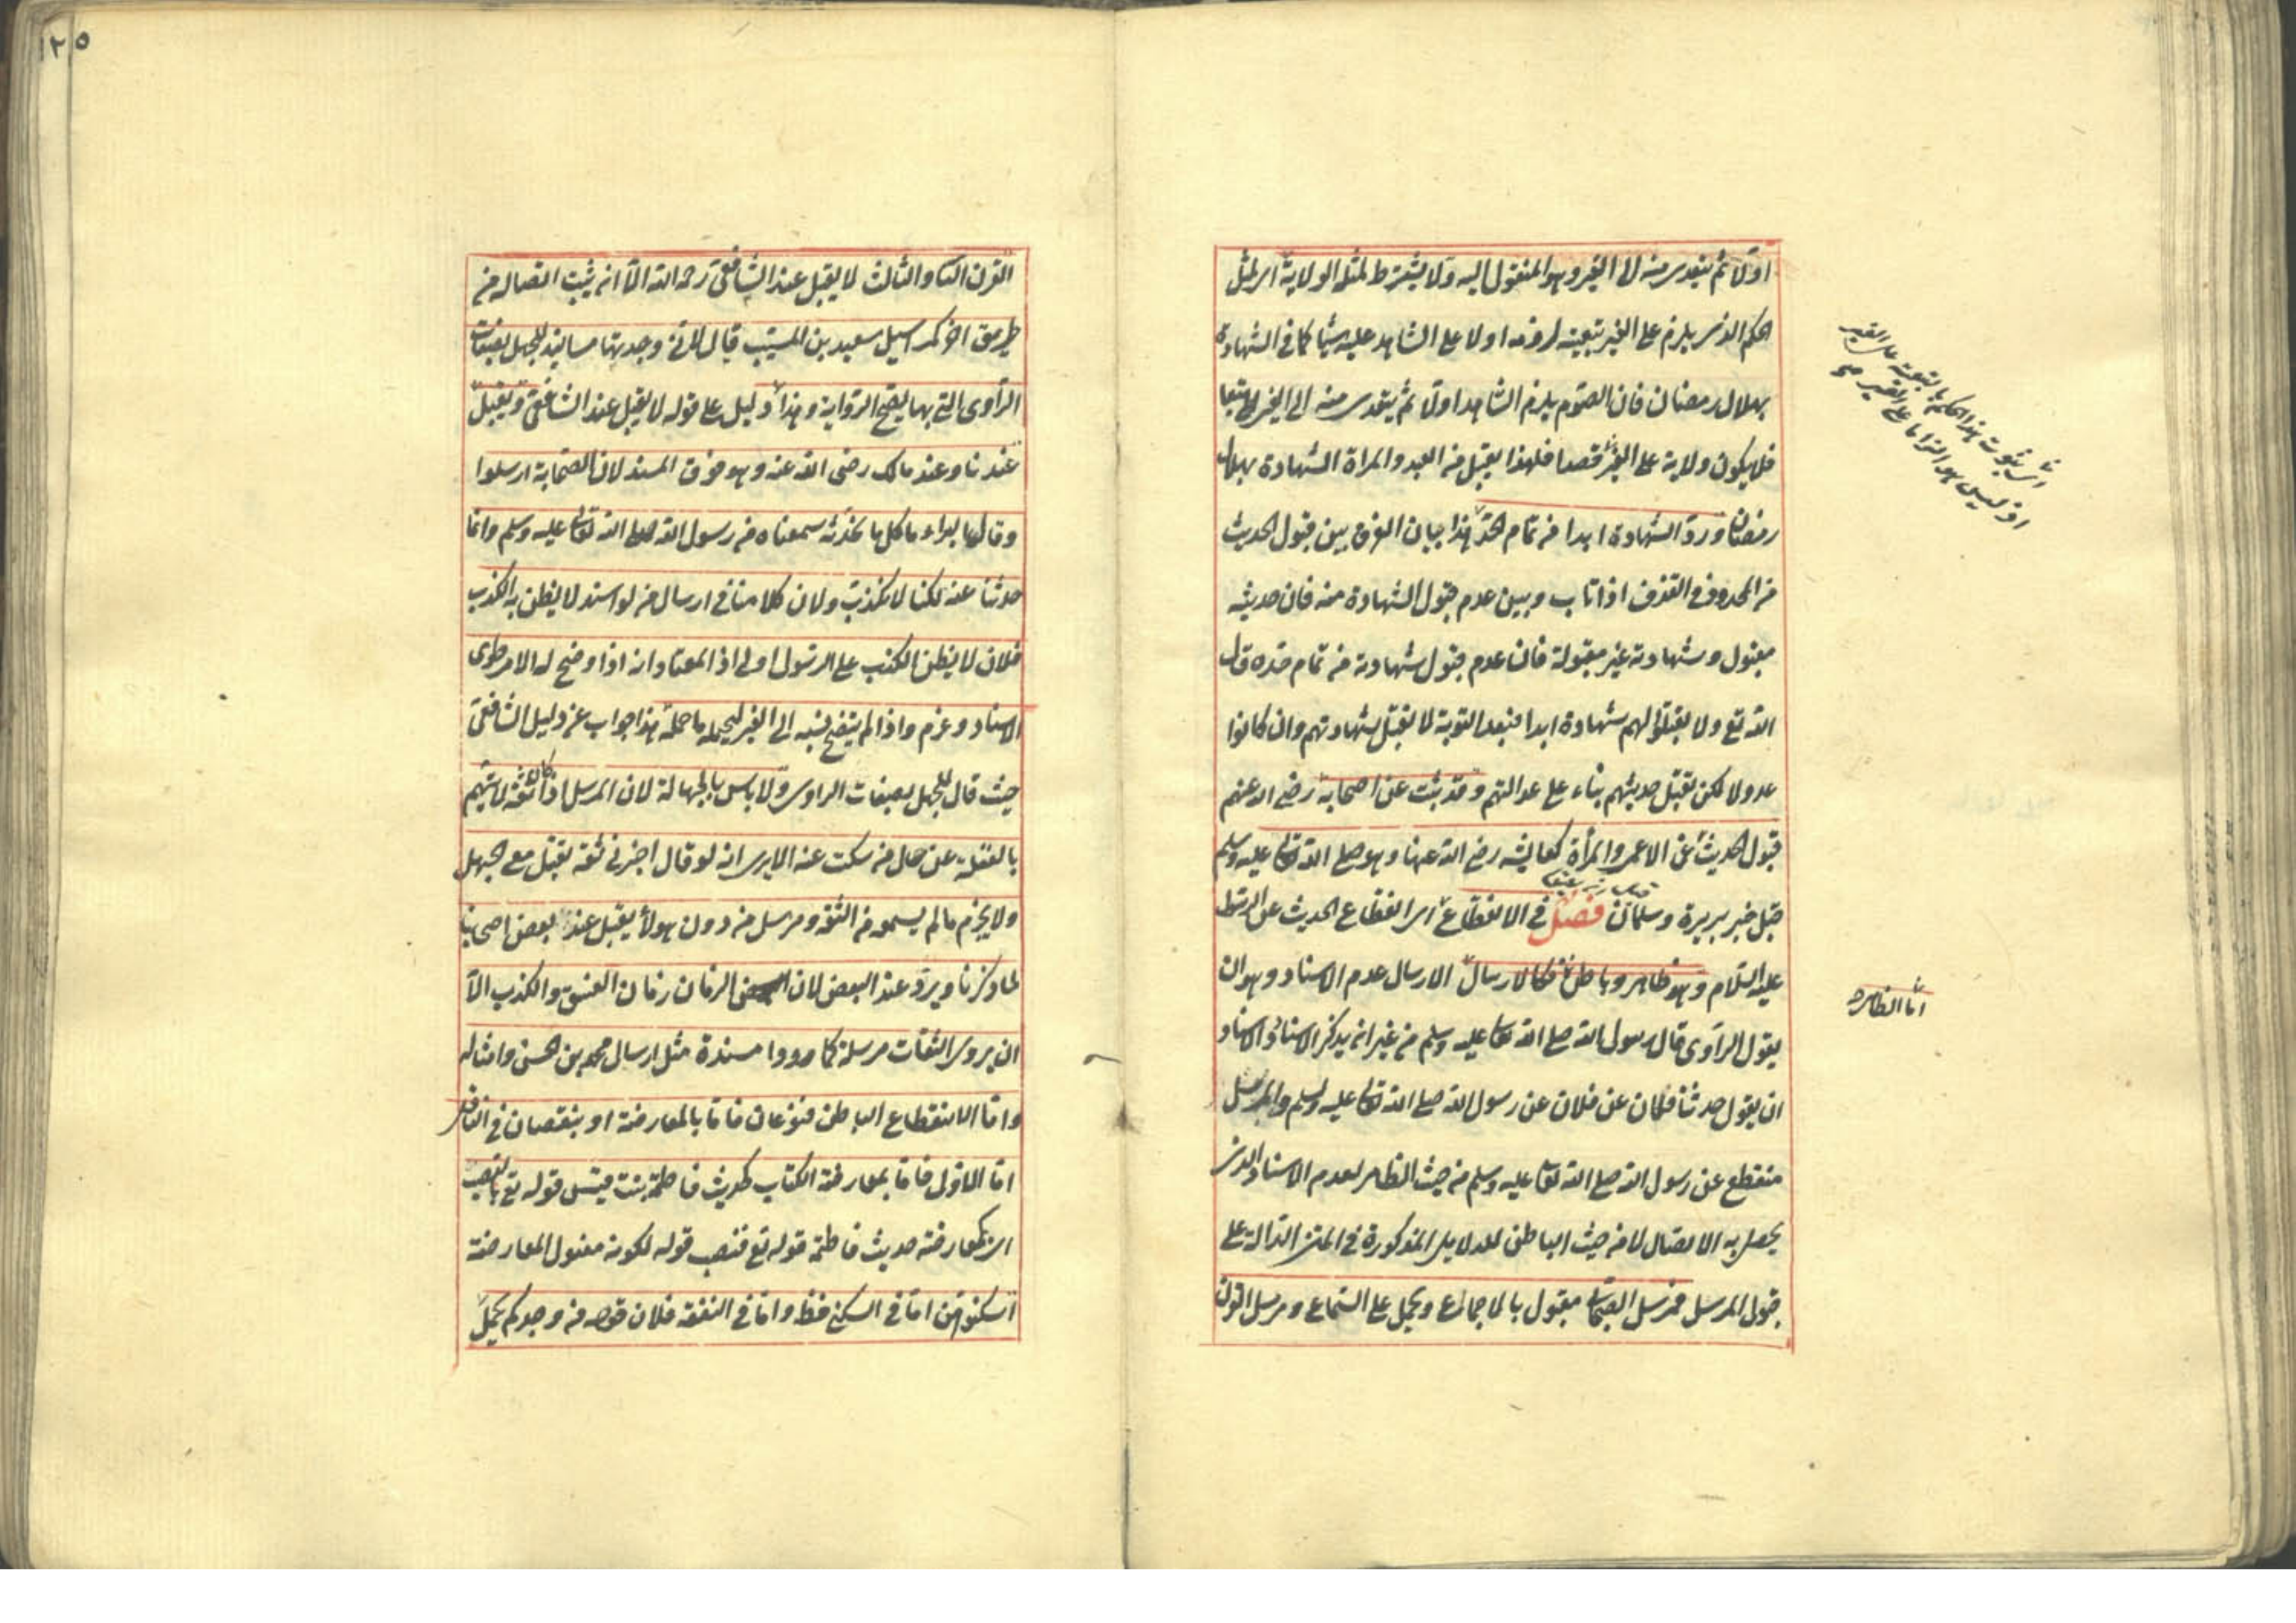 اولا ثم يتعدى منه الى الغير وهو المنقول اليه ولا يشترط لمثله الولاية اى لمثل
الحكم الذى يلزم على الغير بتبعيته لزومه اولا على الشاهد عليه شيئا كما فى الشهادة
بهلال رمضان فان الصوم يلزم الشاهد اولا ثم يتعدى منه الى الغير تبعا
فلا يكون ولاية على الغير قصدا فلهذا يقبل من العبد والمراة الشهادة بهلال
رمضان ورد الشهادة ابدا من تمام الحد هذا بيان الفرق بين قبول الحديث
من المحدود فى القذف اذا تاب وبين عدم قبول الشهادة منه فان حديثه
مقبول وشهادته غير مقبولة فان عدم قبول شهادته من تمام حده قال
الله تع ولا تقبلوا لهم شهادة ابدا فبعد التوبة لا يقبل شهادتهم وان كانوا
عدولا لكن تقبل حديثهم بناء على عدالتهم وقد ثبت عن اصحابه رضى الله عنهم
قبول الحديث عن الاعمى والمرأة كعايشه رضى الله عنها وهو صلى الله تعالى عليه وسلم
قبل خبر بريرة وسلمان فصل فى الانقطاع اى انقطاع الحديث عن الرسول
عليه السلام وهو ظاهر وباطن فكالارسال الارسال عدم الاسناد وهو ان
اما الظاهر
يقول الراوى قال رسول الله صلى الله تعالى عليه وسلم من غير ان يذكر الاسناد والاسناد
ان يقول حدثنا فلان عن فلان عن رسول الله صلى الله تعالى عليه وسلم والمرسل
منقطع عن رسول الله صلى الله تعالى عليه وسلم من حيث الظاهر لعدم الاسناد الذى
يحصل به الاتصال لا من حيث الباطن للدلايل المذكورة فى المتن الدالة على
قبول المرسل فمرسل الصحابى مقبول بالاجماع ويحمل على السماع ومرسل القرن
اى ثبوت هذا الحكم بالتبعية على الغير
اذ ليس هو الزاما على الغير
١٢٥
القرن الثانى والثالث لا يقبل عند الشافعى رحمه الله الا ان يثبت اتصاله من
طريق اخر كمراسيل سعيد بن المسيب قال لانى وجدتها مسانيد للجهل بصفات
الراوى التى بها يصح الرواية وهذا دليل على قوله لا يقبل عند الشافعى ويقبل
عندنا وعند مالك رضى الله عنه وهو فوق المسند لان الصحابة ارسلوا
وقال البراء ما كل ما نحدثه سمعناه من رسول الله صلى الله تعالى عليه وسلم وانما
حدثنا عنه لكنا لا نكذب ولان كلامنا فى ارسال من لو اسند لا يظن به الكذب
فلان لا يظن الكذب على الرسول اولى اذ المعتاد انه اذا وضح له الامر طوى
الاسناد وعزم واذا لم يتضح نسبه الى الغير ليحمله ما حمله هذا جواب عن دليل الشافعى
حيث قال للجهل بصفات الراوى ولا باس بالجهالة لان المرسل اذا كان ثقة لا يتهم
بالغفلة عن حال من سكت عنه الا يرى انه لو قال اخبرنى ثقة يقبل مع الجهل
ولا يجزم مالم يسمعه من الثقة ومرسل من دون هولأ يقبل عند بعض اصحابنا
لما ذكرنا ويرد عند البعض لان الزمان زمان الفسق والكذب الا
ان يروى الثقات مرسله كما رووا مسنده مثل ارسال محمد بن الحسن وامثاله
واما الانقطاع الباطن فنوعان فاما بالمعارضة او بنقصان فى الناقل
اما الاول فاما بمعارضة الكتاب كحديث فاطمة بنت قيس قوله تع بالنصب
اى كمعارضة حديث فاطمة قوله تع فنصب قوله لكونه مفعول المعارضة
اسكنوهن اما فى السكنى فظ واما فى النفقة فلان قوله من وجدكم يحمل